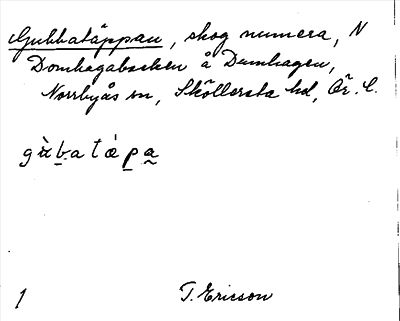 Gubbatäppan, skog numera, N
Domhagabacken å Dumhagen,
Norrbyås sn, Sköllersta hd, Ör. l.
gùbatǽpa
1 T. Ericson